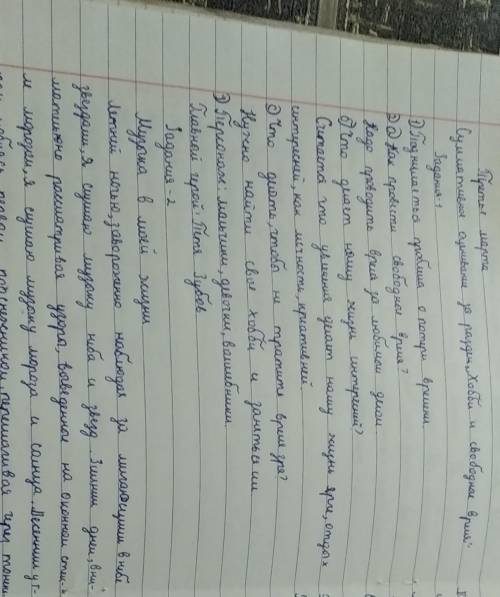 Третье марта
Суммативное оценивание за раздел „Хобби и свободное время"
Задание-1
1) Поднимается проблема о потери времени
2) а) Как провести свободное время?
Надо проводить время за любимым делом
б) Что делает нашу жизнь интересней?
Считаете что увлечения делает нашу жизнь ярче, отдых
интересней, как личность, креативней.
в) Что делать, чтобы не тратить время зря?
Нужно найти свое хобби и заняться им
3) Персонажи: мальчики, девочки, волшебники
Главный герой: Петя Зубов
Задание-2
Музыка в моей жизни
Летней ночью, завороженно наблюдая за мигающими в небе
звездами, я слушаю музыку неба и звезд. Зимним днем, вни-
мательно рассматривая узоры, выведенные на оконном стек-
м морозом, я слушаю музыку мороза и солнца. Весенним ут-
первым подснежником,